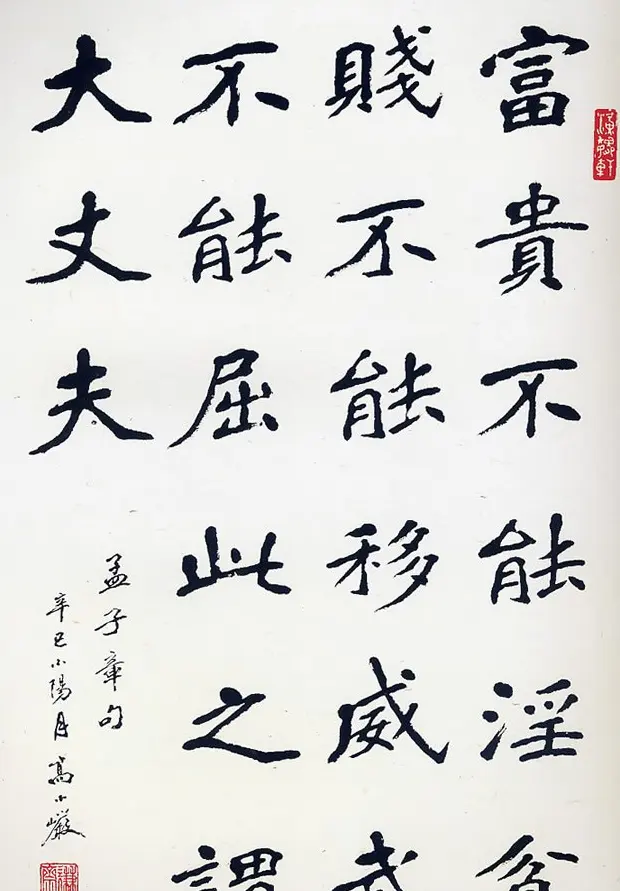 富貴不能淫貧
賤不能移威武
不能屈此之謂
大丈夫
孟子章句
辛巳小陽月 高小巖